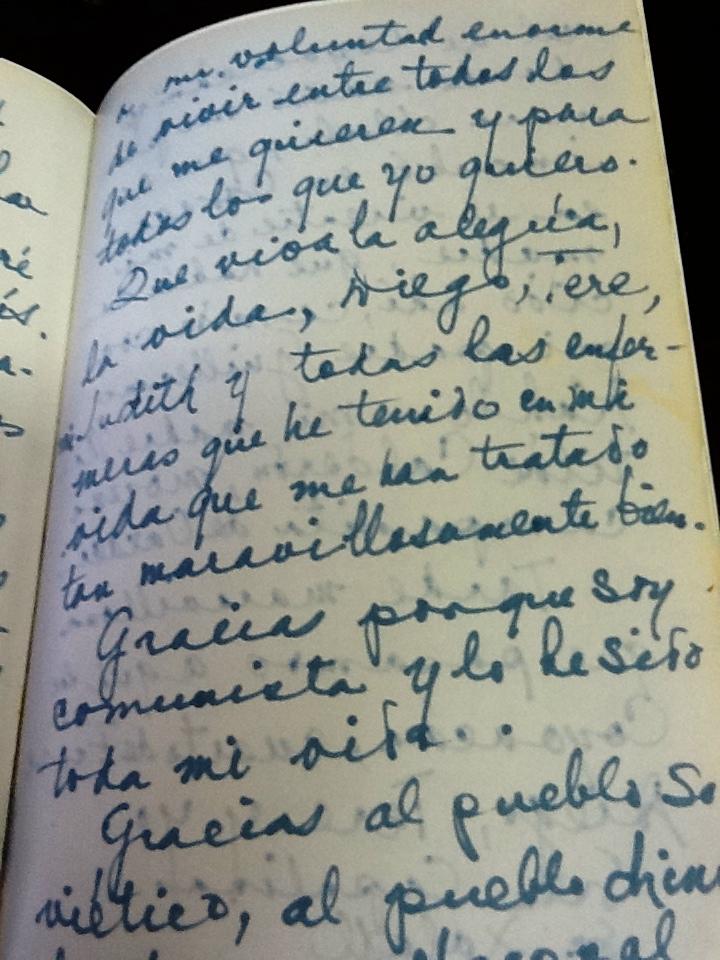 a mi voluntad enorme
de vivir entre todos los
que me quieren y para
todos los que yo quiero.
Que viva la alegría,
la vida, Diego, Tere,
Judith y todas las enfer-
meras que he tenido en mi
vida que me han tratado
tan maravillosamente bien.
Gracias porque soy
comunista y lo he sido
toda mi vida..
Gracias al pueblo So
viético, al pueblo chin